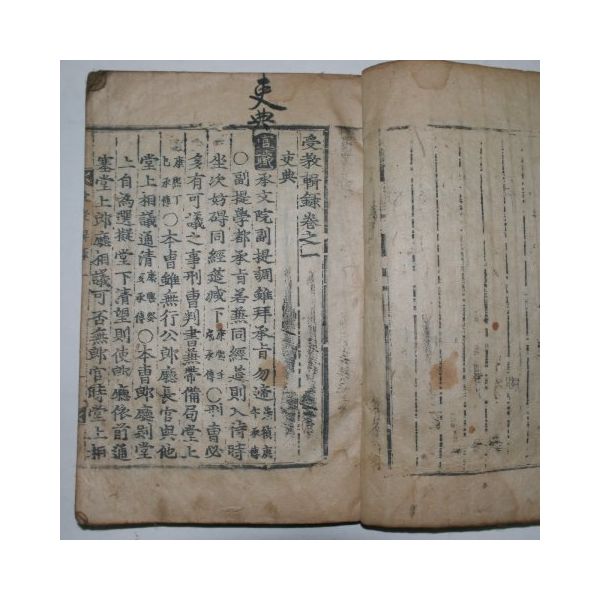 吏典
受教輯錄卷之一
吏典
官職 承文院副提調雖拜承旨勿遞 崇禎庚午承傳
○副提學都承旨若兼同經筵則入侍時
坐次妨碍同經筵減下 康熙壬戌承傳 ○刑曹必
多有可議之事刑曹判書兼帶備局堂上
康熙丁巳承傳 ○本曹雖無行公郎廳長官與他
堂上相議通清 康熙癸亥承傳 ○本曹郎廳則堂
上自爲選擬堂下清望則使郎廳依前通
塞堂上郎廳相議可否無郎官時堂上相